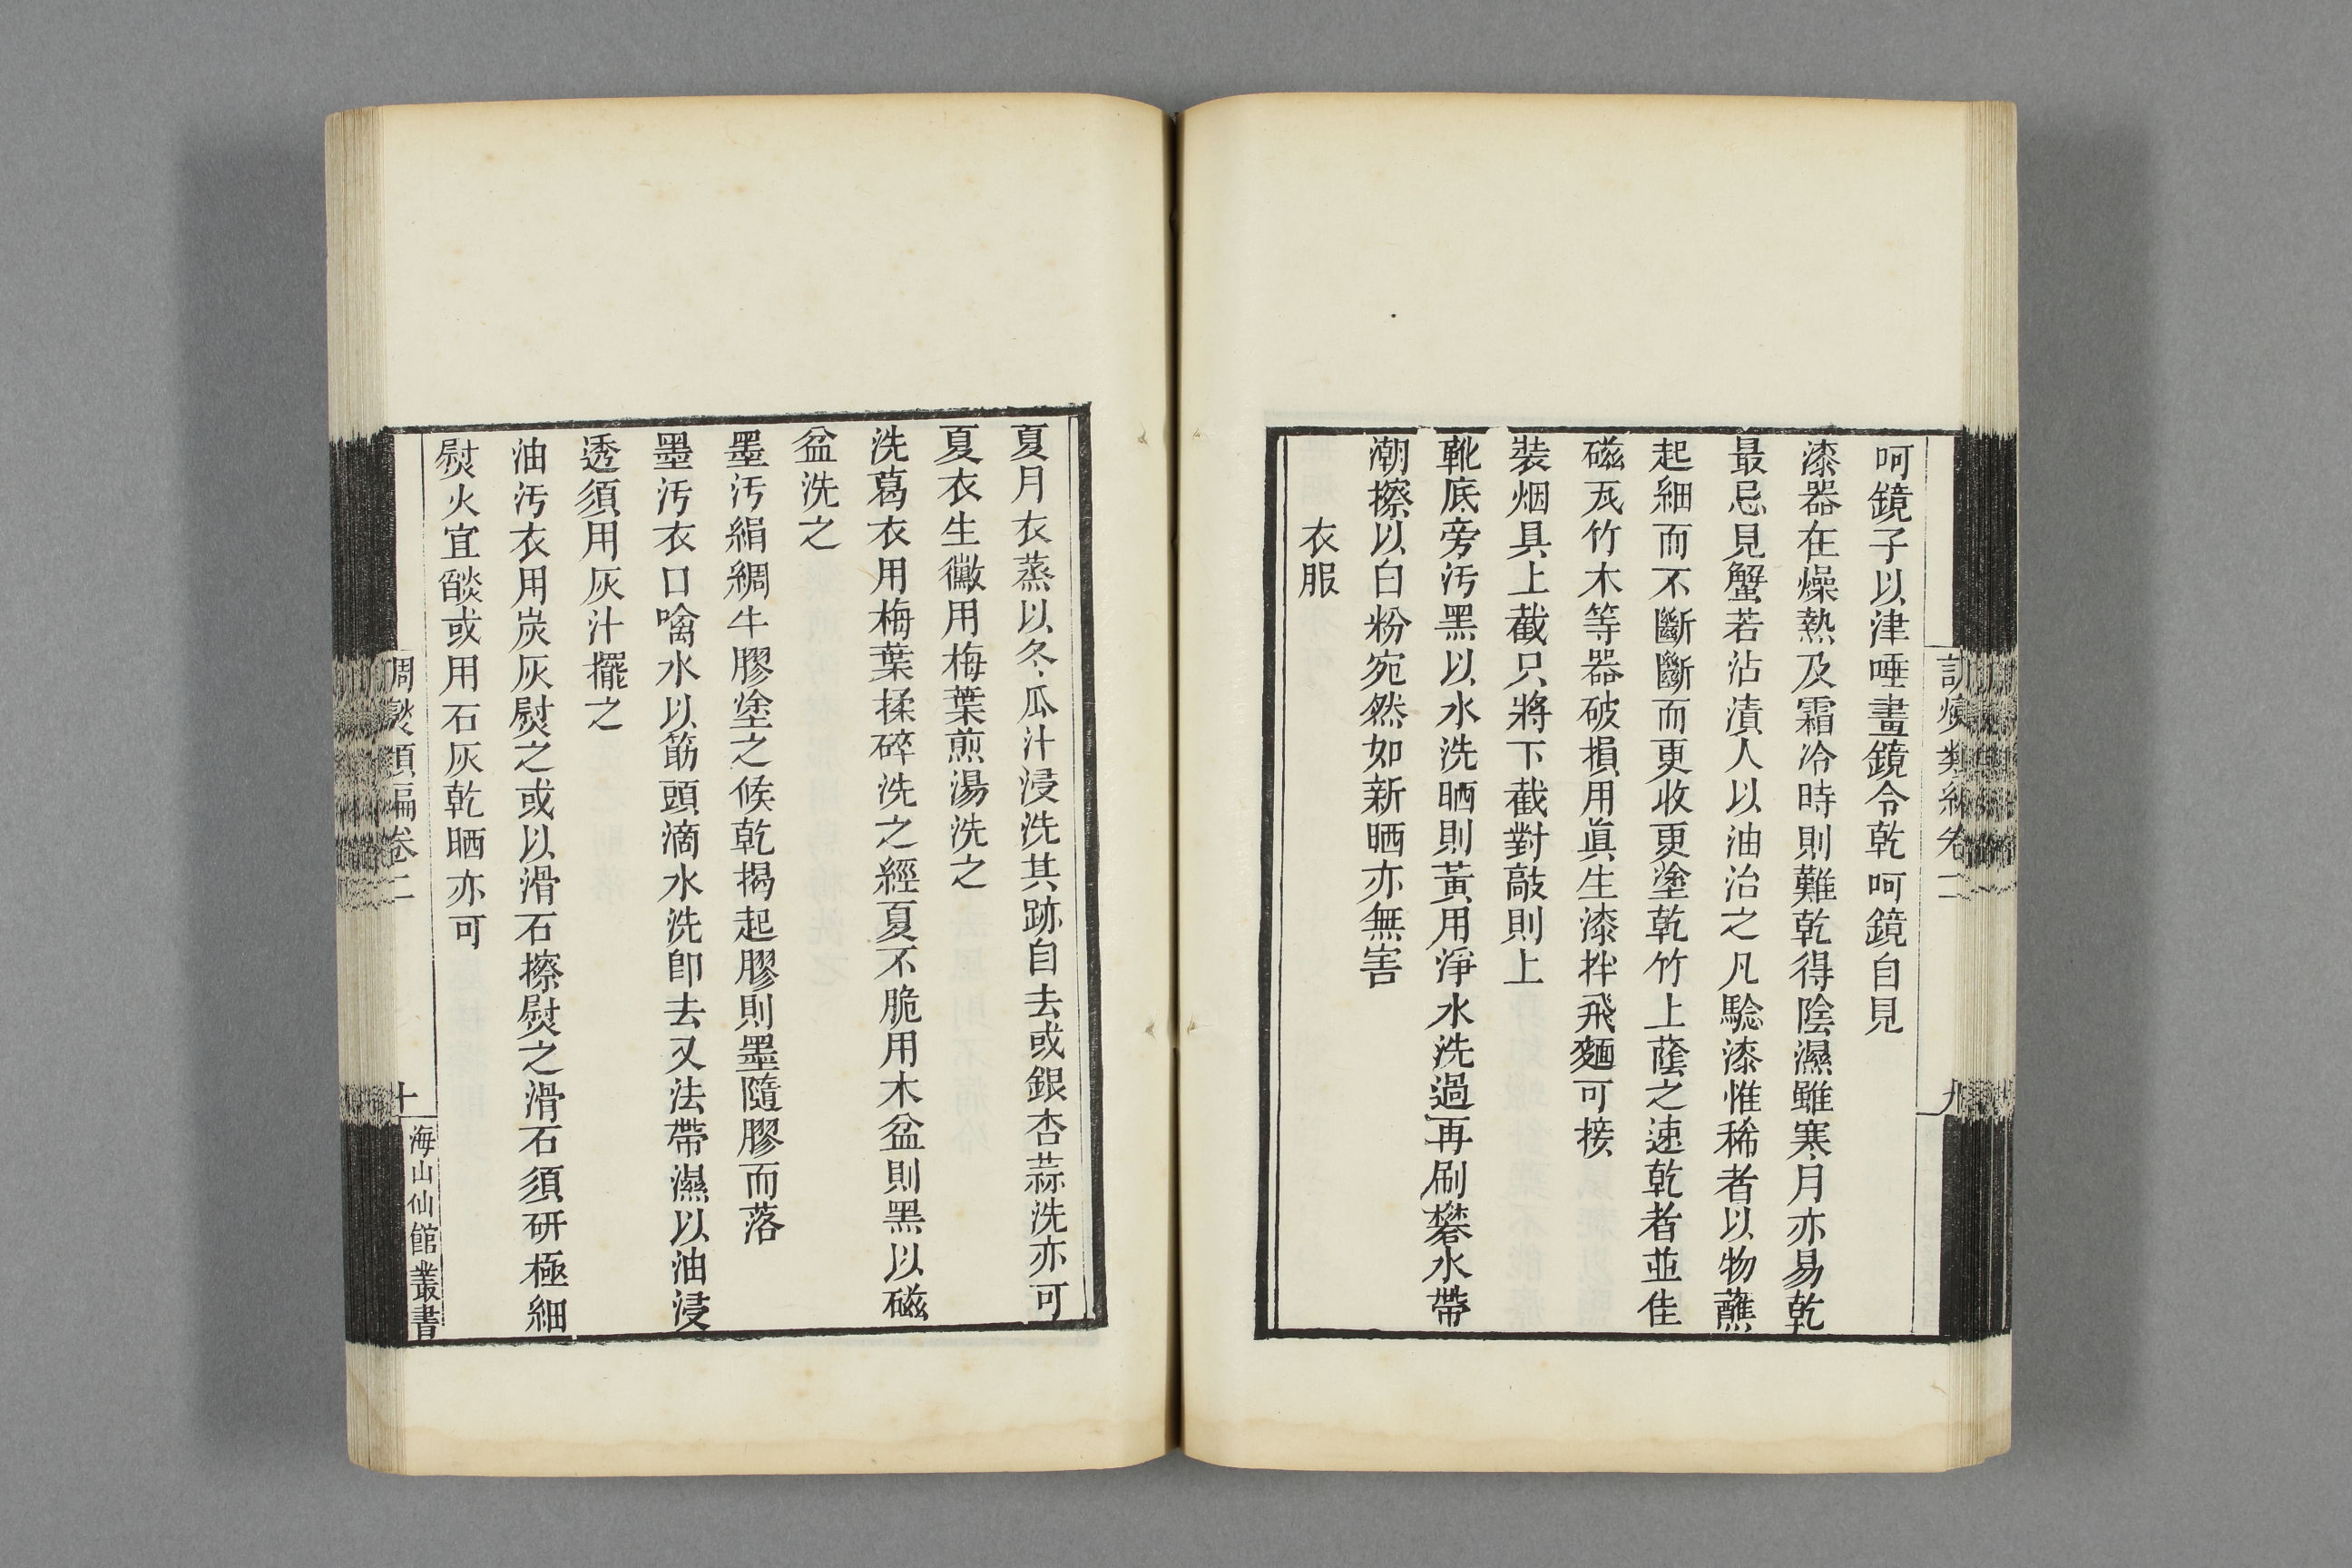 呵鏡子以津唾畫鏡令乾呵鏡自見
漆器在燥熱及霜冷時則難乾得陰濕雖寒月亦易乾
最忌見蟹若沾漬人以油治之凡驗漆惟稀者以物蘸
起細而不斷斷而更收更塗乾竹上蔭之速乾者並佳
磁瓦竹木等器破損用眞生漆拌飛麵可接
裝烟具上截只將下截對敲則上
靴底旁汚黑以水洗晒則黃用淨水洗過再刷礬水帶
潮擦以白粉宛然如新晒亦無害
衣服
夏月衣蒸以冬瓜汁浸洗其跡自去或銀杏蒜洗亦可
夏衣生黴用梅葉煎湯洗之
洗葛衣用梅葉揉碎洗之經夏不脆用木盆則黑以磁
盆洗之
墨汚絹綢牛膠塗之候乾揭起膠則墨隨膠而落
墨汚衣口噙水以筯頭滴水洗卽去又法帶濕以油浸
透須用灰汁擺之
油汚衣用炭灰熨之或以滑石擦熨之滑石須研極細
熨火宜燄或用石灰乾晒亦可
調燮類編卷二
十
海山仙館叢書